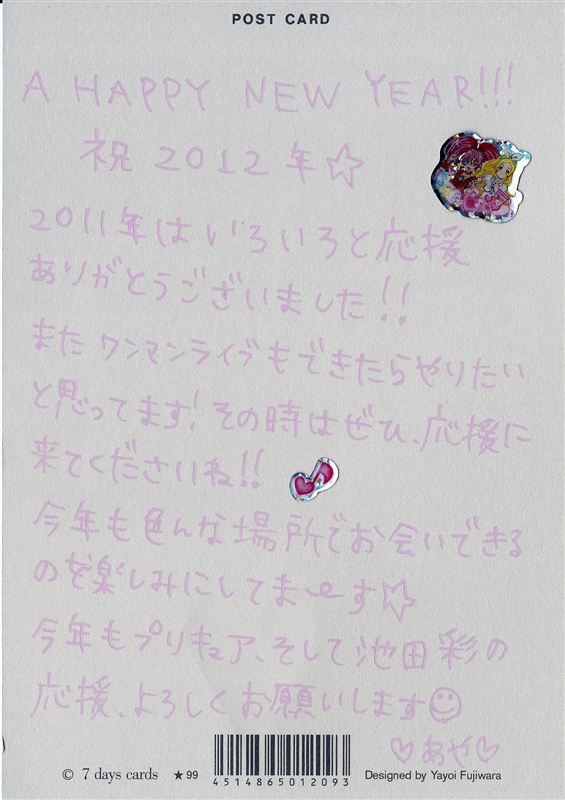 POST CARD
A HAPPY NEW YEAR!!!
祝 2012年☆
2011年はいろいろと応援
ありがとうございました!!
またワンマンライブもできたらやりたい
と思ってます!その時はぜひ、応援に
来てくださいね!!
今年も色んな場所でお会いできる
のを楽しみにしてま〜す☆
今年もプリキュア、そして池田彩の
応援、よろしくお願いします☺
♡あや♡
© 7 days cards ★99 4514865012093 Designed by Yayoi Fujiwara